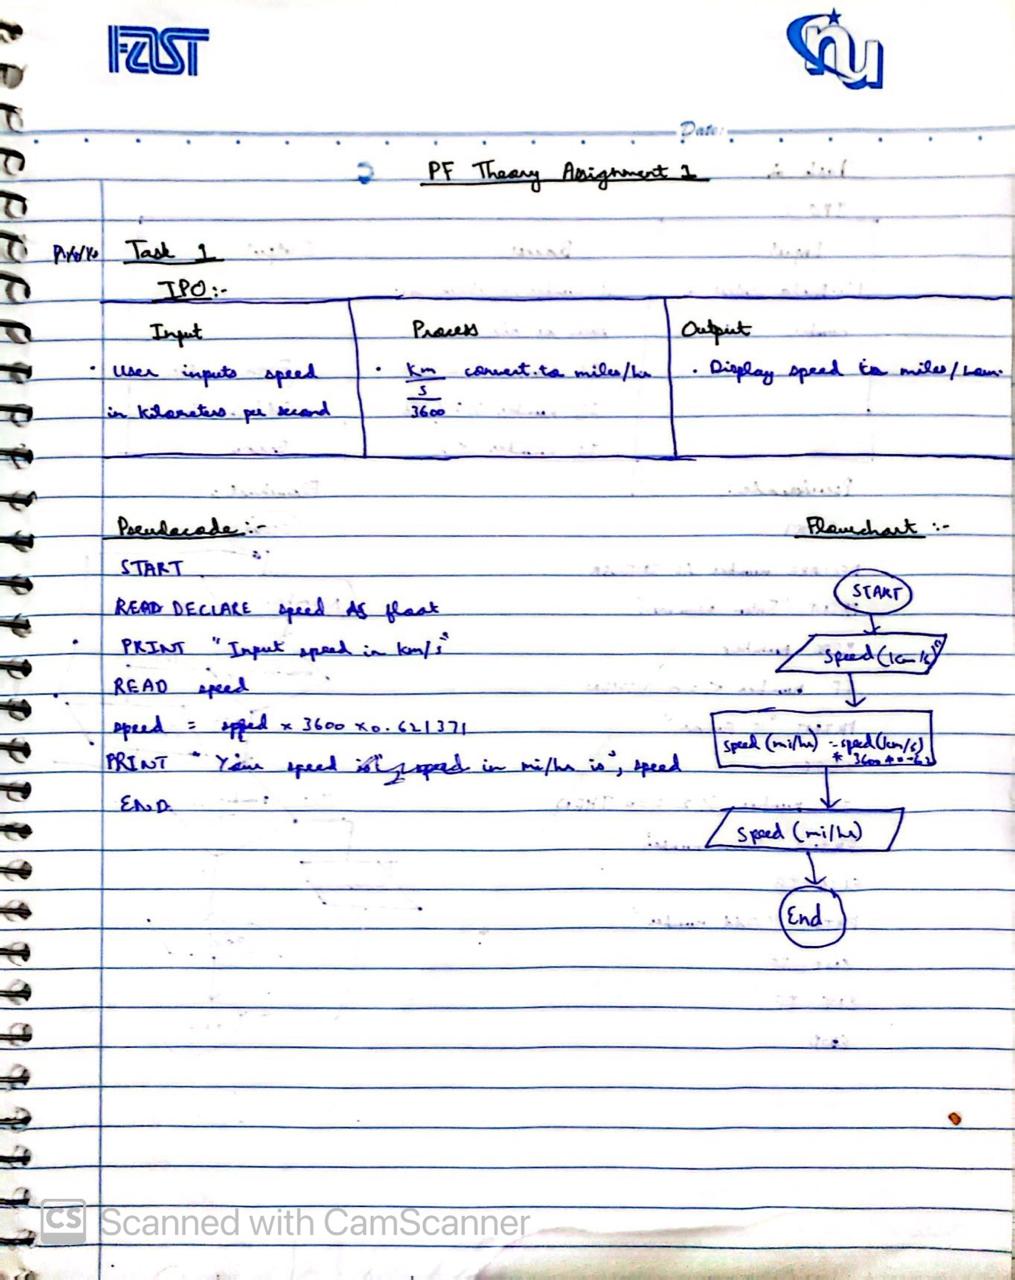 FAST
nu
Date:
PF Theory Assignment 1
Task 1
IPO:-
Input
Process
Output
• User inputs speed
in kilometers per second
• Km convert to miles/hr
s
3600
• Display speed to miles/hour.
Pseudocode :-
Flowchart :-
START
READ DECLARE speed AS float
PRINT "Input speed in km/s"
READ speed
speed = speed × 3600 × 0.621371
PRINT " Your speed is", speed in mi/hr is", speed
END.
START
speed (km/s)
speed (mi/hr) = speed (km/s)
* 3600 *
speed (mi/hr)
End
CS Scanned with CamScanner